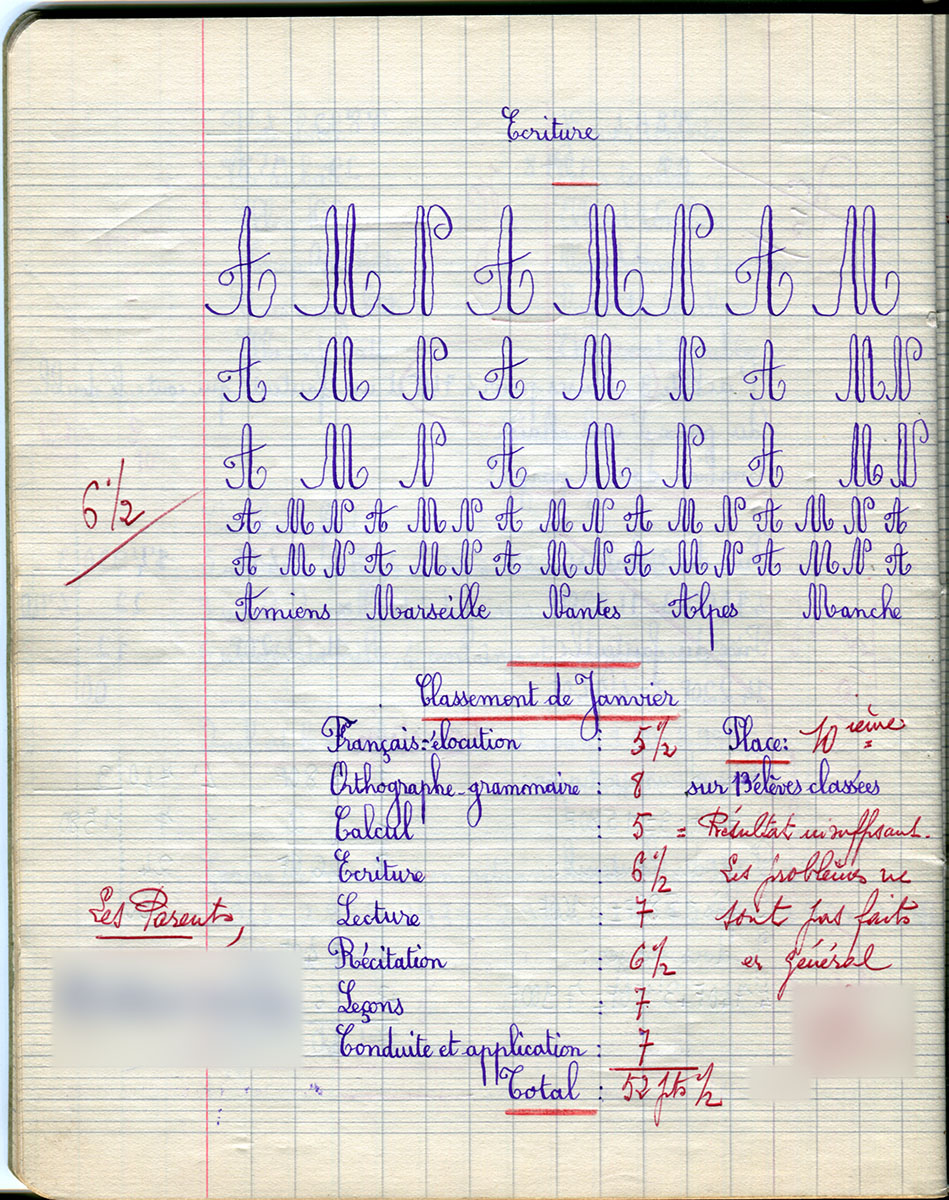 Ecriture
A M N A M N A M
A M N A M N A M N
A M N A M N A M N
6 1/2
A M N A M N A M N A M N A M N A
A M N A M N A M N A M N A M N A
Amiens Marseille Nantes Alpes Manche
Classement de Janvier
Français-élocution : 5 1/2 Place: 10 ième
Orthographe-grammaire : 8 sur 13 élèves classées
Calcul : 5 = Résultat insuffisant.
Ecriture : 6 1/2 Les problèmes ne
Lecture : 7 sont pas faits
Les Parents,
Récitation : 6 1/2 en général
Leçons : 7
Conduite et application : 7
Total : 52 pts 1/2